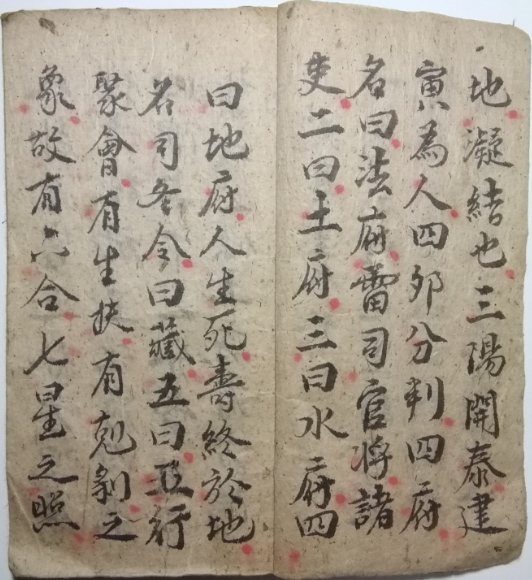 地凝結也三陽開泰建
寅為人四卯分判四府
名曰法府雷司官将諸
吏二曰土府三曰水府四
曰地府人生死壽終於地
名司冬令曰藏五曰五行
聚會有生扶有剋剝之
象故有六合七星之照